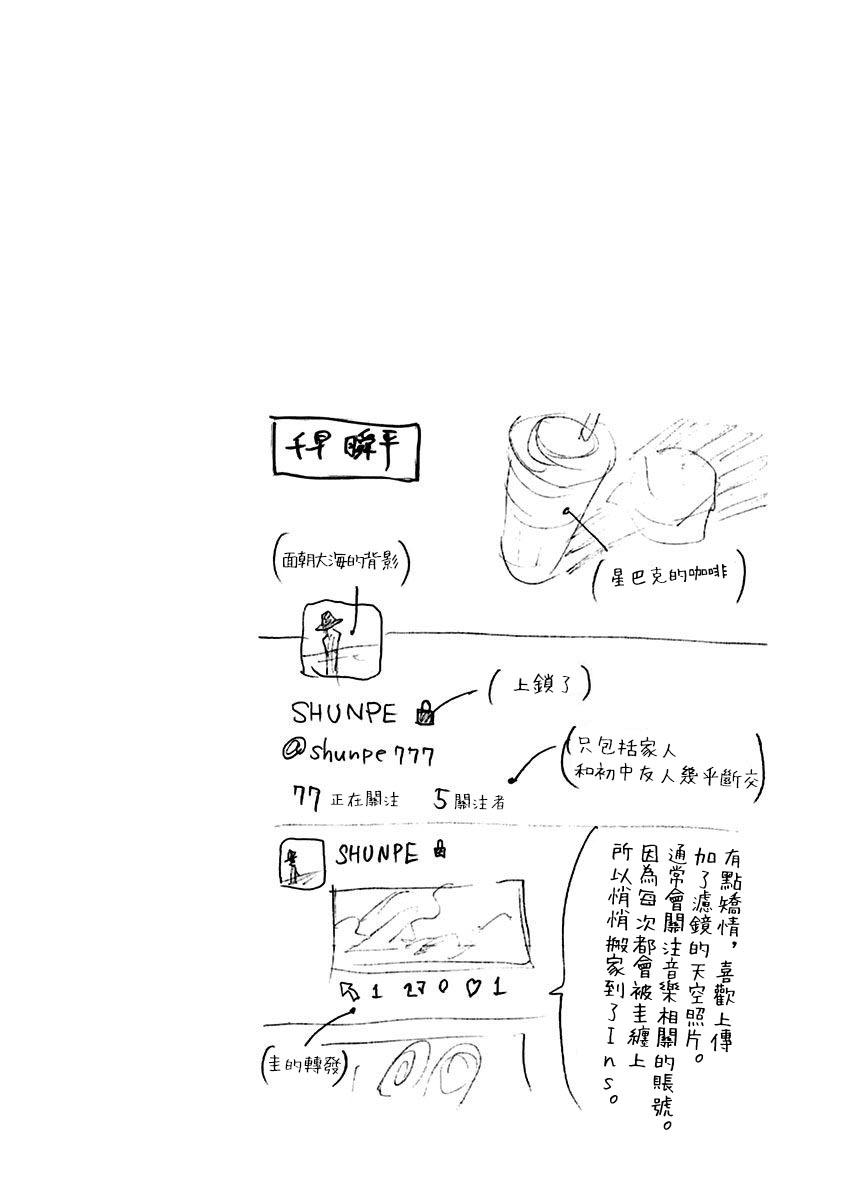 千早 瞬平
星巴克的咖啡
面朝大海的背影
上鎖了
SHUNPE
@shunpe777
只包括家人
和初中友人幾乎斷交
77 正在關注 5 關注者
SHUNPE
1 27 0 ♡ 1
圭的轉發
有點矯情，喜歡上傳
加了濾鏡的天空照片。
通常會關注音樂相關的賬號。
因為每次都會被圭纏上
所以悄悄搬家到了Ins。